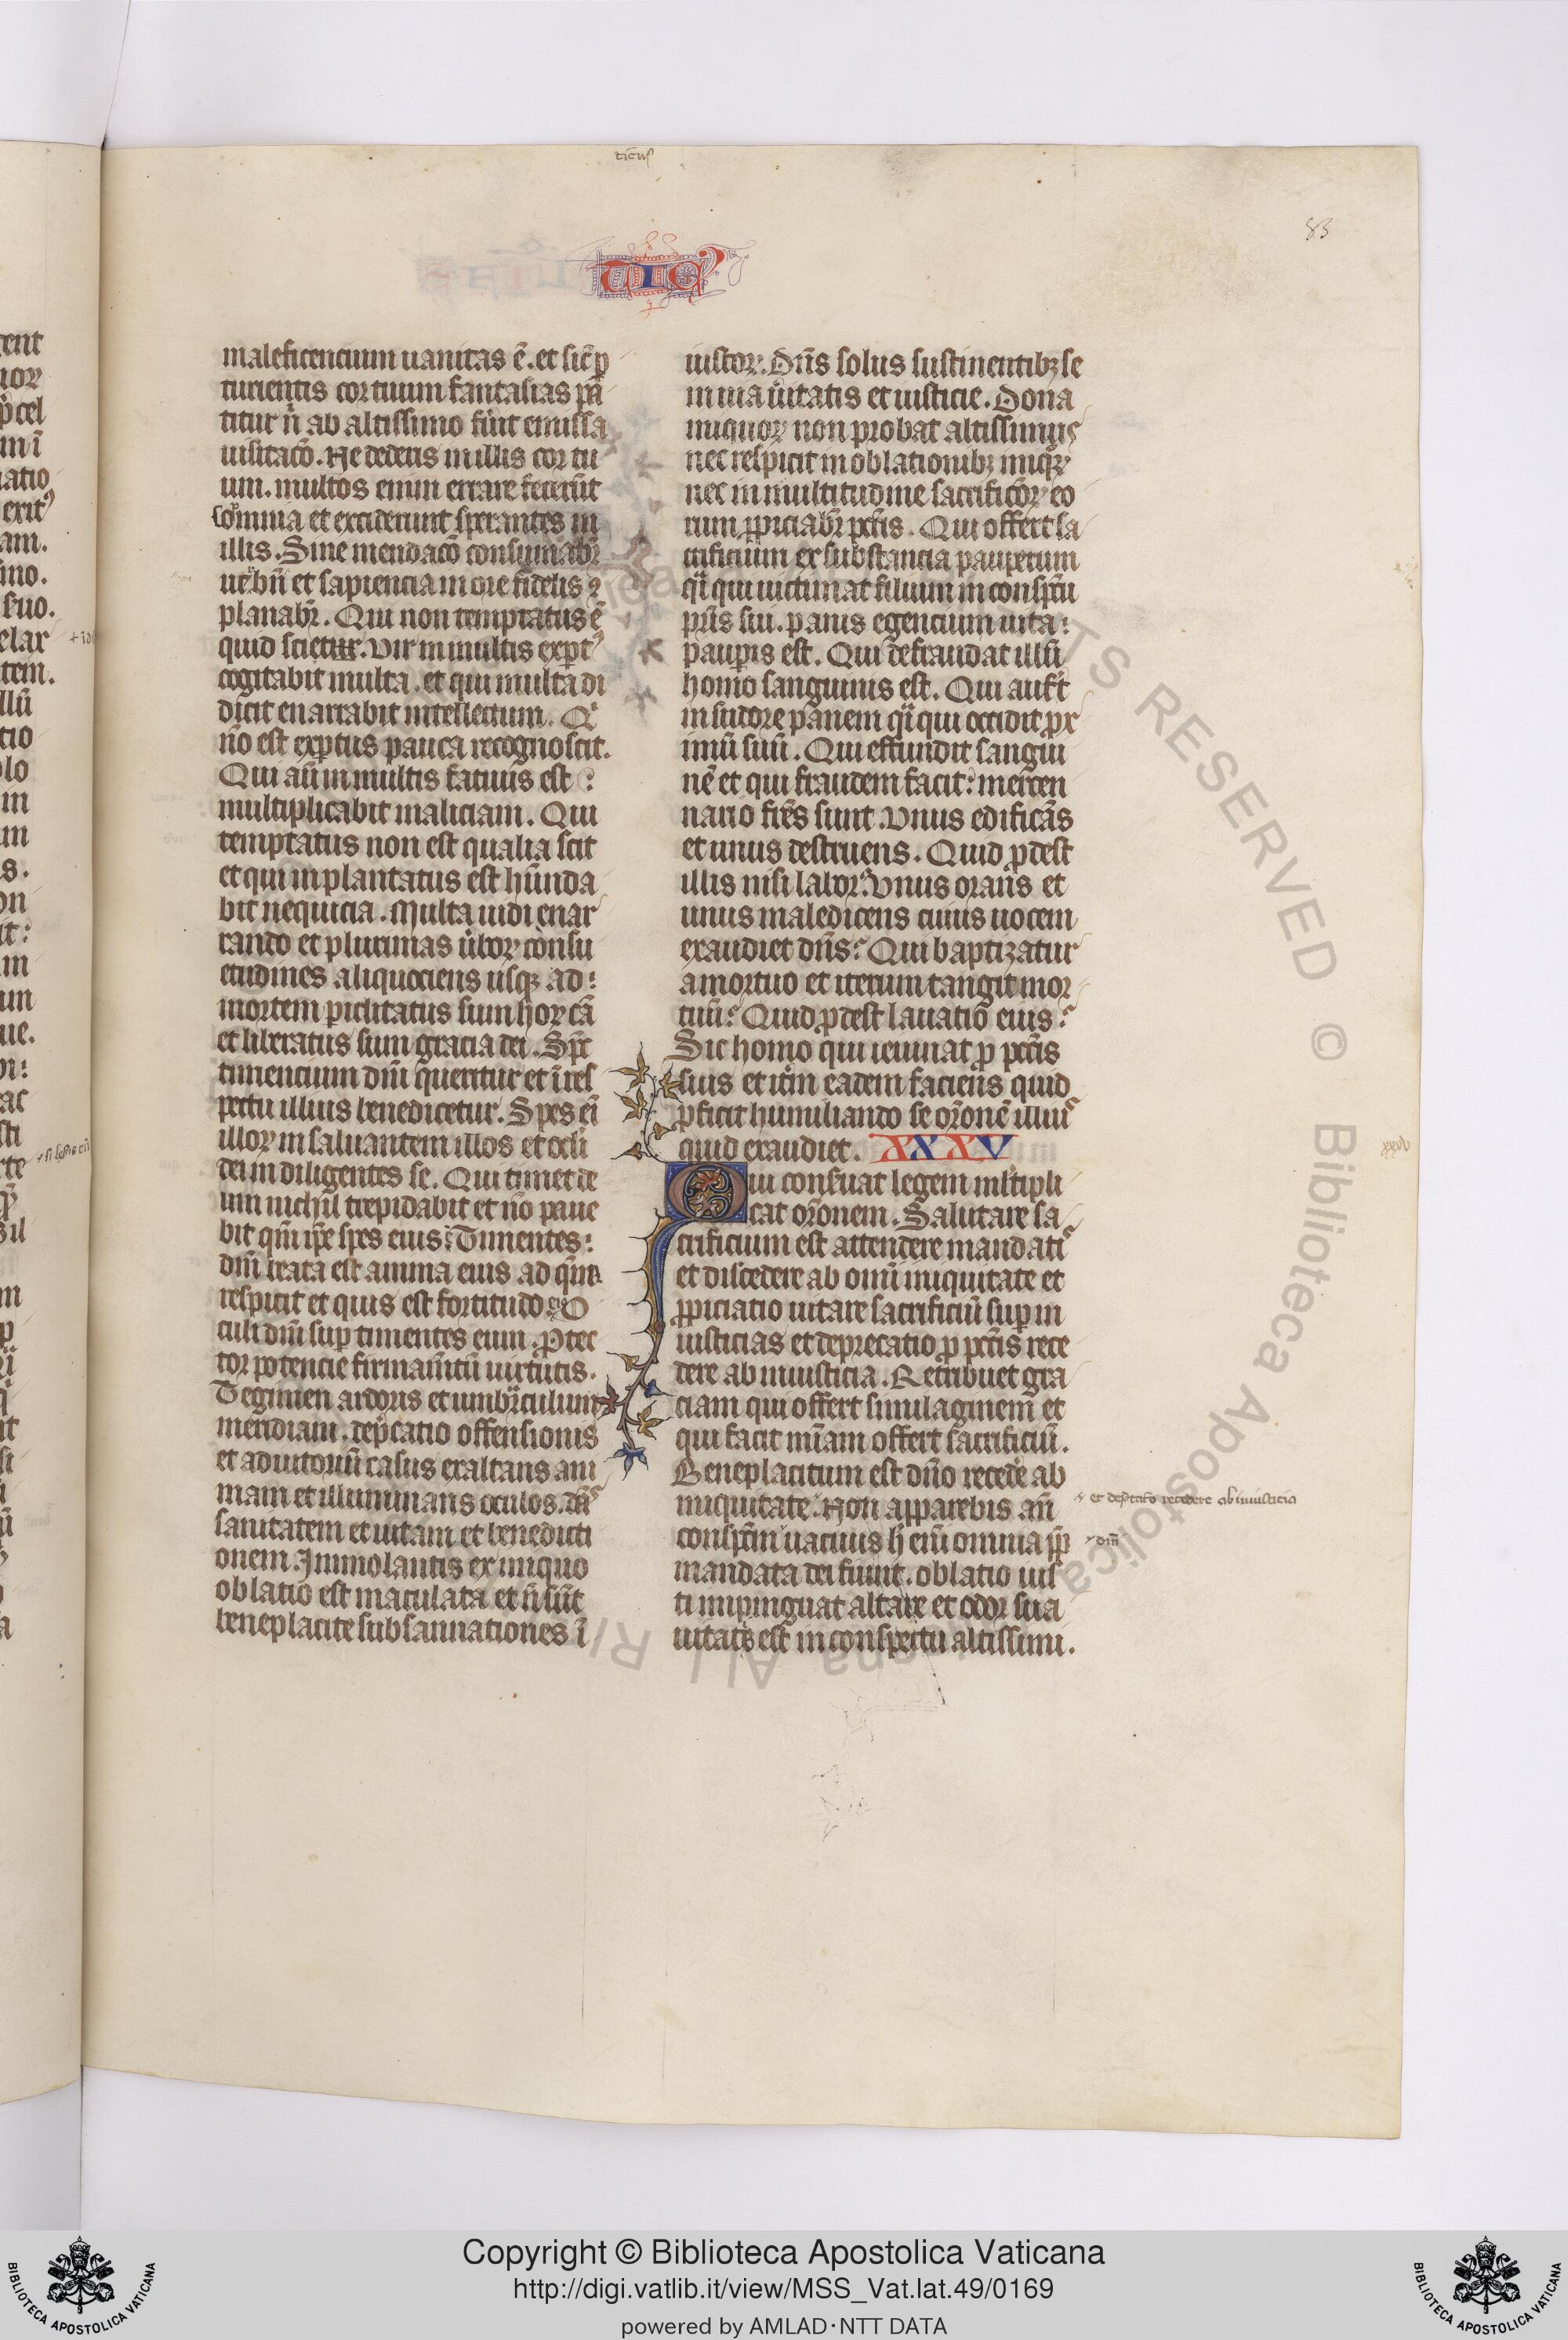 ticus
83
TIC9
maleficencium uanitas ē. et sic̄ ꝑ
turientis cor tuum fantasias pā
titur nͥ ab altissimo fu̇it emissa
uisitac̄o. Ne dederis in illis cor tu
um. multos enim errare fecerūt
sōmnia et exciderunt sperantes in
illis. Sine mendac̄o consumabr̄
uerbū et sapiencia in ore fidelis 9
planabr̄. Qui non temptatus ē
quid scietur. Vir in multis exꝑt9
cogitabit multa. et qui multa di
dicit enarrabit intellectum. Qͥ
nō est exꝑtus pauca recognoscit.
Qui aū in multis fatuus est :
multiplicabit maliciam. Qui
temptatus non est qualia scit
et qui inplantatus est hūnda
bit nequicia. Multa uidi enar
rando et plurimas u̇boꝝ consu
etudines aliquociens usqꝫ ad :
mortem ꝑiclitatus sum hoꝝ cā
et liberatus sum gracia dei. Sp̄c
timencium dn̄i queritur et ī res
pectu illius benedicetur. Spes ei̅
illoꝝ in saluantem illos et oc̄li
dei in diligentes se. Qui timet de
um nichil trepidabit et nō paue
bit qm̄ ip̄e spes eius : Timentes :
dn̄m beata est anima eius. ad quē
respicit et quis est fortitudo ei9 O
culi dn̄i suꝑ timentes eum. ꝓtec
tor potencie firmam̄tū uirtutis.
Tegimen ardoris et umbͣculum
meridiani. dep̄catio offensionis
et adiutoriū casus exaltans ani
mam et illuminans oculos. dās
sanitatem et uitam et benedicti
onem. Immolantis ex iniquo
oblatio est maculata et n̄ sūt
beneplacite subsannationes ī
iustoꝝ. Dn̄s solus sustinentibꝫ se
in uia u̇itatis et iusticie. Dona
iniquoꝝ non probat altissimus
nec respicit in oblationibꝫ iniqꝝ
nec in multitudine sacrific̄oꝝ eo
rum ꝓpiciabr̄ pctīs. Qui offert sa
crificium ex substancia pauperum
qͣi qui uictimat filium in conspc̄u
pr̄is sui. panis egencium uita :
pauꝑis est. Qui defraudat illū
homo sanguinis est. Qui auf̄t
in sudore panem qͣi qui occidit ꝓx
imū suū. Qui effundit sangui
nē et qui fraudem facit : mercen
nario fr̄es sunt. Vnus edificās
et unus destruens. Quid ꝓdest
illis nisi labor : Vnus orans et
unus maledicens cuius uocem
exaudiet dn̄s : Qui baptizatur
a mortuo et iterum tangit mor
tuū : Quid ꝓdest lauatio eius :
Sic homo qui ieiunat ꝓ pctīs
suis et itm̄ eadem faciens quid
ꝓficit humiliando se or̄onē illiu9
quid exaudiet. XXXV
Qui conseruat legem ml̄tipli
cat or̄onem. Salutare sa
crificium est attendere mandatis
et discedere ab omī iniquitate et
ꝓpiciatio uitare sacrificiū suꝑ in
iusticias et deprecatio ꝓ pctīs rece
dere ab iniusticia. Retribuet gra
ciam qui offert similaginem et
qui facit mīam offert sacrificiū.
Beneplacitum est dn̄o recede̅ ab
iniquitate. Non apparebis an̄
conspc̄m uacuus h̄ enī omnia ꝓp̄
mandata dei fiunt. oblatio ius
ti impinguat altare et odor sua
uitatis est in conspectu altissimi.
et dep̄catō recedere ab iniusticia
dn̄i
xxxv
ALL RIGHTS RESERVED © Biblioteca Apostolica Vaticana
Copyright © Biblioteca Apostolica Vaticana
http://digi.vatlib.it/view/MSS_Vat.lat.49/0169
powered by AMLAD·NTT DATA
BIBLIOTECA APOSTOLICA VATICANA
BIBLIOTECA APOSTOLICA VATICANA